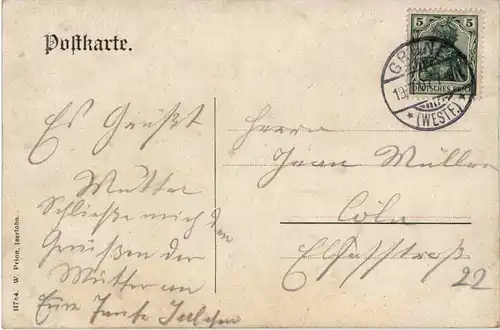 Postkarte.
5 5
DEUTSCHES REICH
GR
19.
* (WESTF) *
Es Grüßt
Mutter
Schließe mich den
Grüßen der
Mutter an
Eure Tante
Herrn
Jean Müller
Cöln
Elsaßstraße
22
11784 W. Prion, Iserlohn.